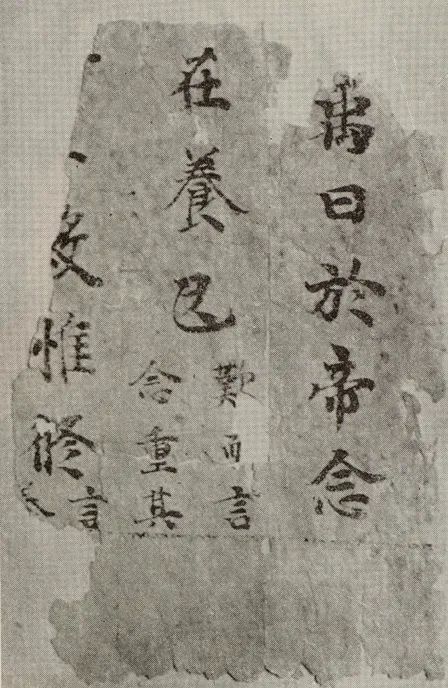 禹曰於帝念
在養民
歎而言
念重其
惟脩
言